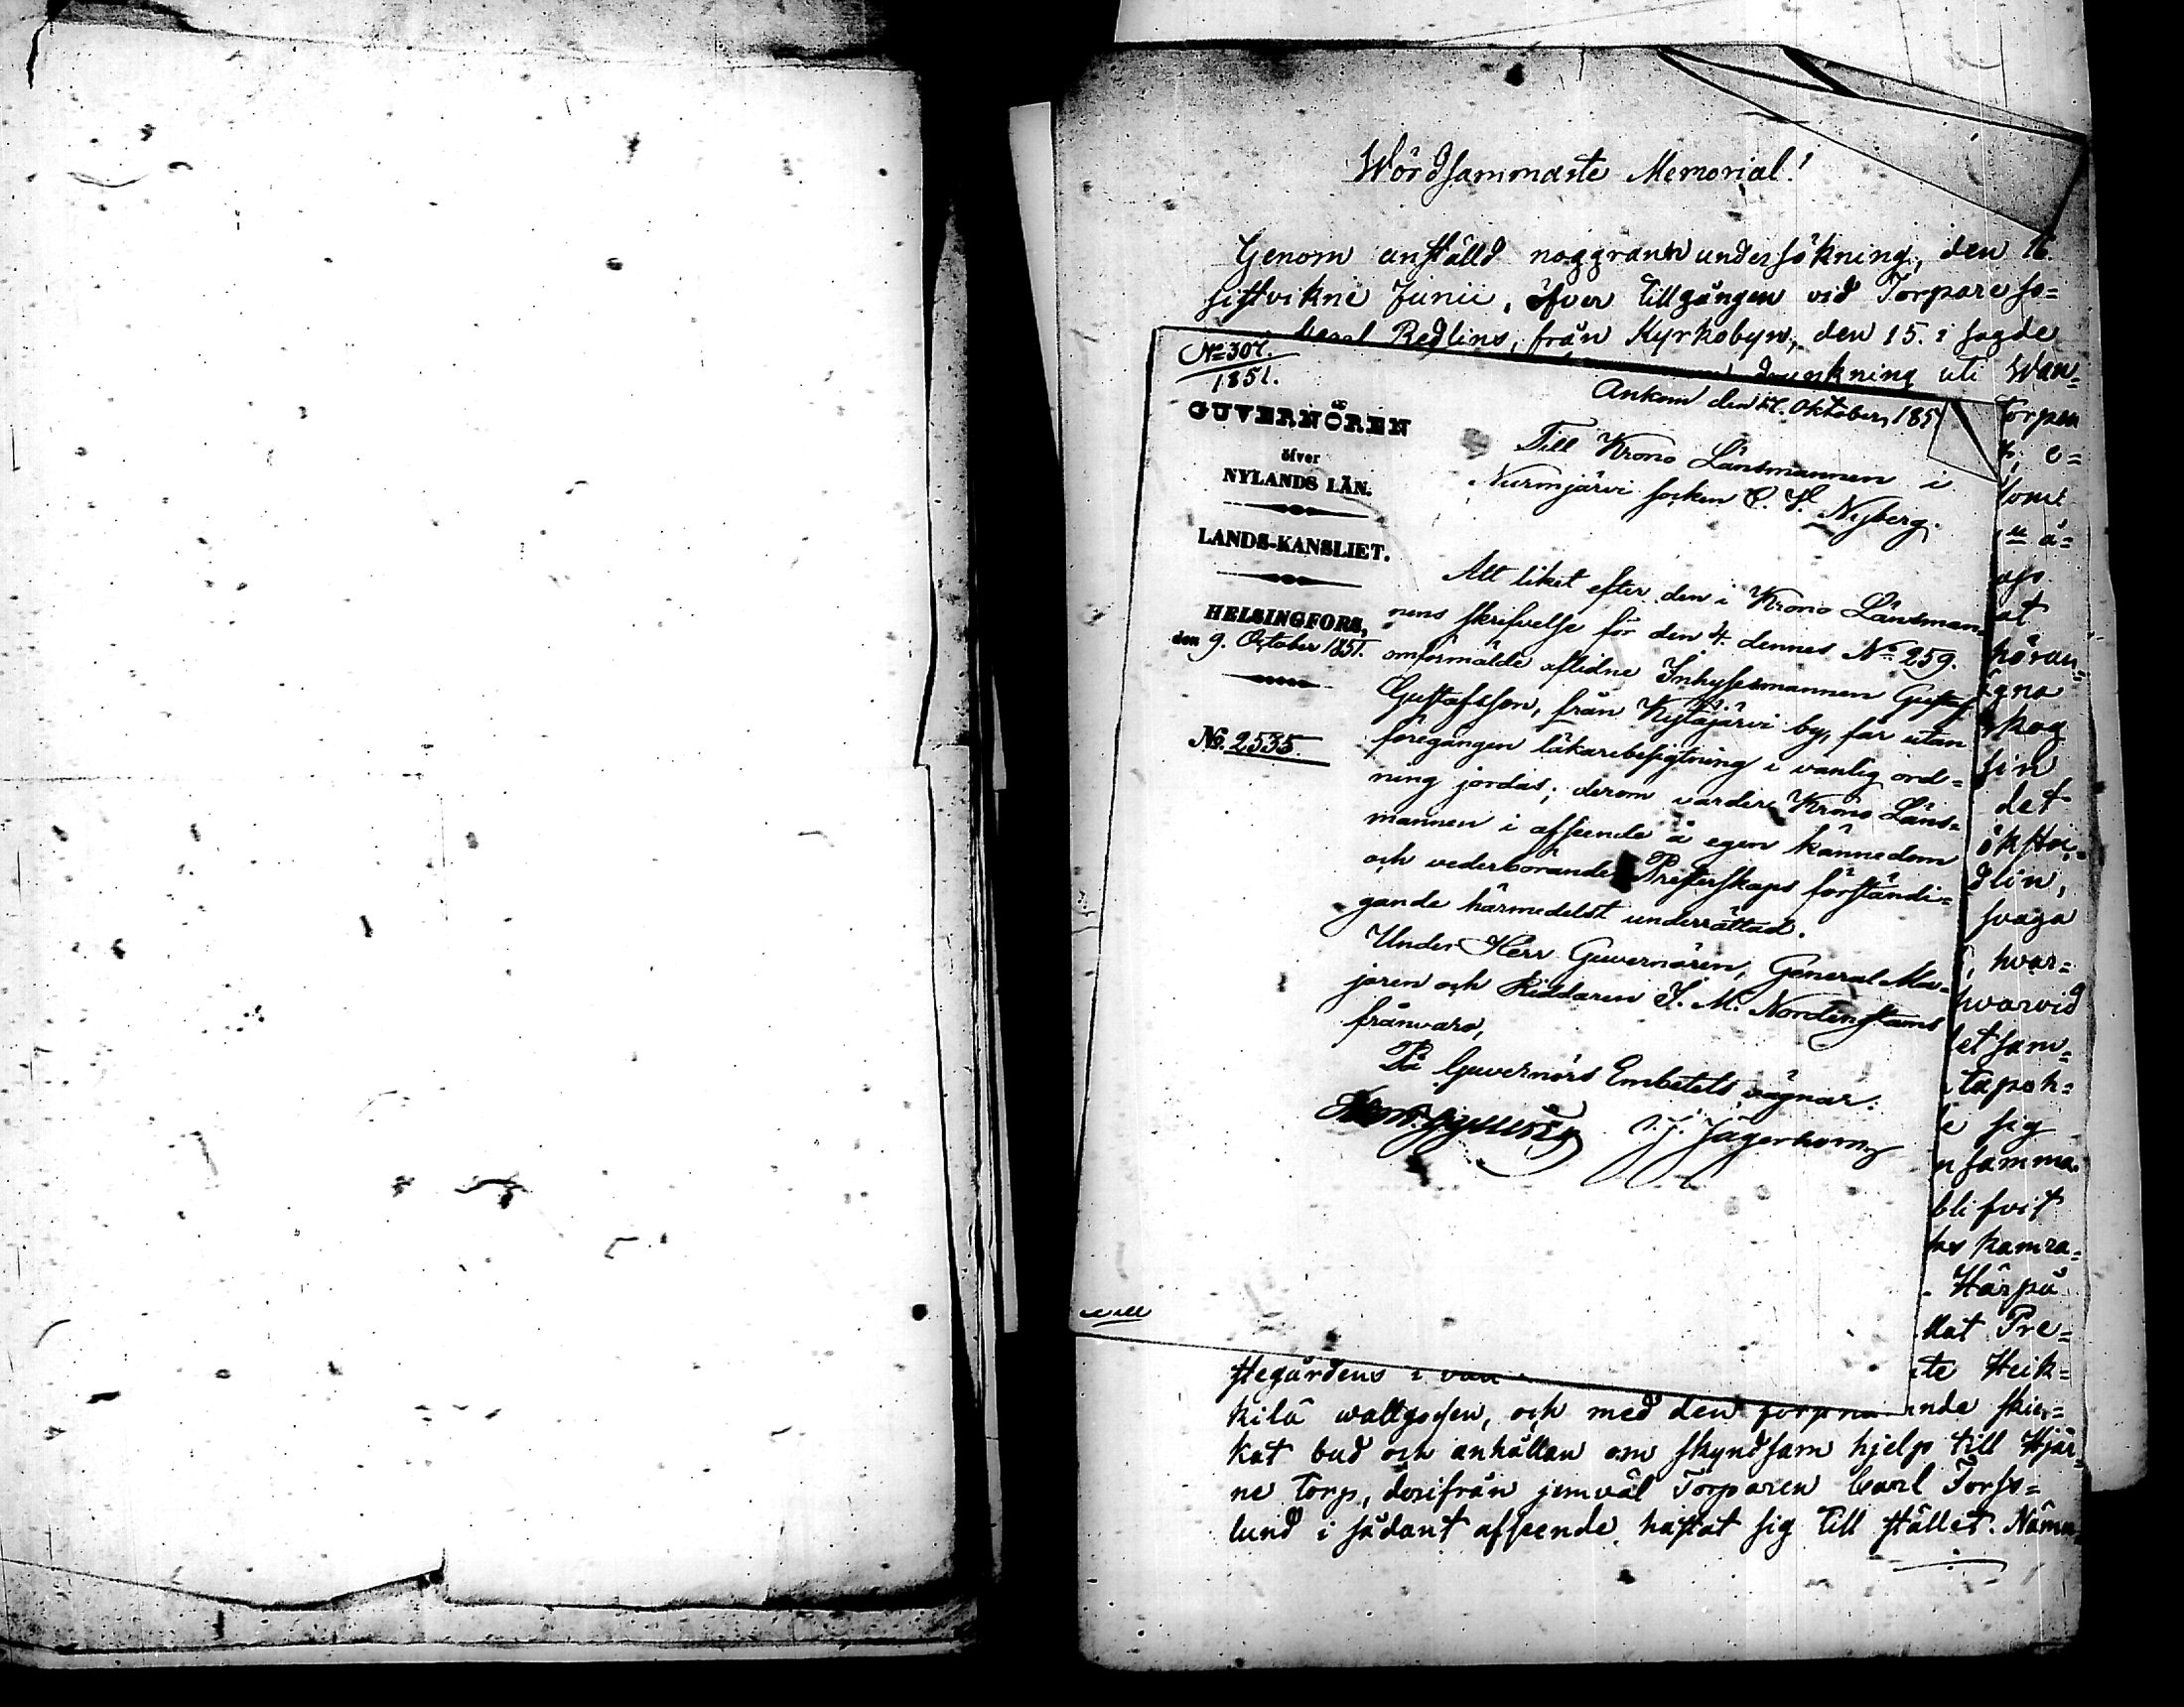 Wördsammaste Memorial!
Genom anställd noggrann undersökning, den 16.
sistvikne Junii, öfver tillgången vid Torpare so-
Carl Redlins, från Kyrkobyn, den 15. i sagde
drunkning uti Wan-
No 307.
1851.
GUVERNÖREN
öfver
NYLANDS LÄN.
LANDS-KANSLIET.
HELSINGFORS,
den 9. October 1851.
No. 2535.
Ankom den 17. Oktober 185
Till Krono Länsmannen i
Nurmijärvi socken C. F. Nyberg.
Att liket efter den i Krono Länsman-
nens skrifvelse för den 4. dennes No 259.
omförmälde aflidne Inhysesmannen Gustaf
Gustafsson, från Kytäjärvi by, får utan
föregången läkarebesigtning i vanlig ord-
ning jordas; derom varder Krono Läns-
mannen i afseende å egen kännedom
och vederbörande Presterskaps förständi-
gande härmedelst underrättad.
Under Herr Guvernören, General Ma-
joren och Riddaren J. M. Nordenstams
frånvaro,
På Guvernörs Embetets vägnar:
J. J. Jägerhorn
torpen
e-
som
å-
at
höran-
egna
skog
sin
det
ökstor-
dlin,
svaga
hvar-
hvarvid
et sam-
tapoh-
e sig
n samma
blifvit
kamra-
Härpå
llat Pre-
te Heik-
stegårdens i
kilä wallgossen, och med den nde skic-
kat bud och anhållan om skyndsam hjelp till Hjär-
ne torp, derifrån jemväl Torparen Carl Forss-
lund i sådant afseende hastat sig till stället. Näm-